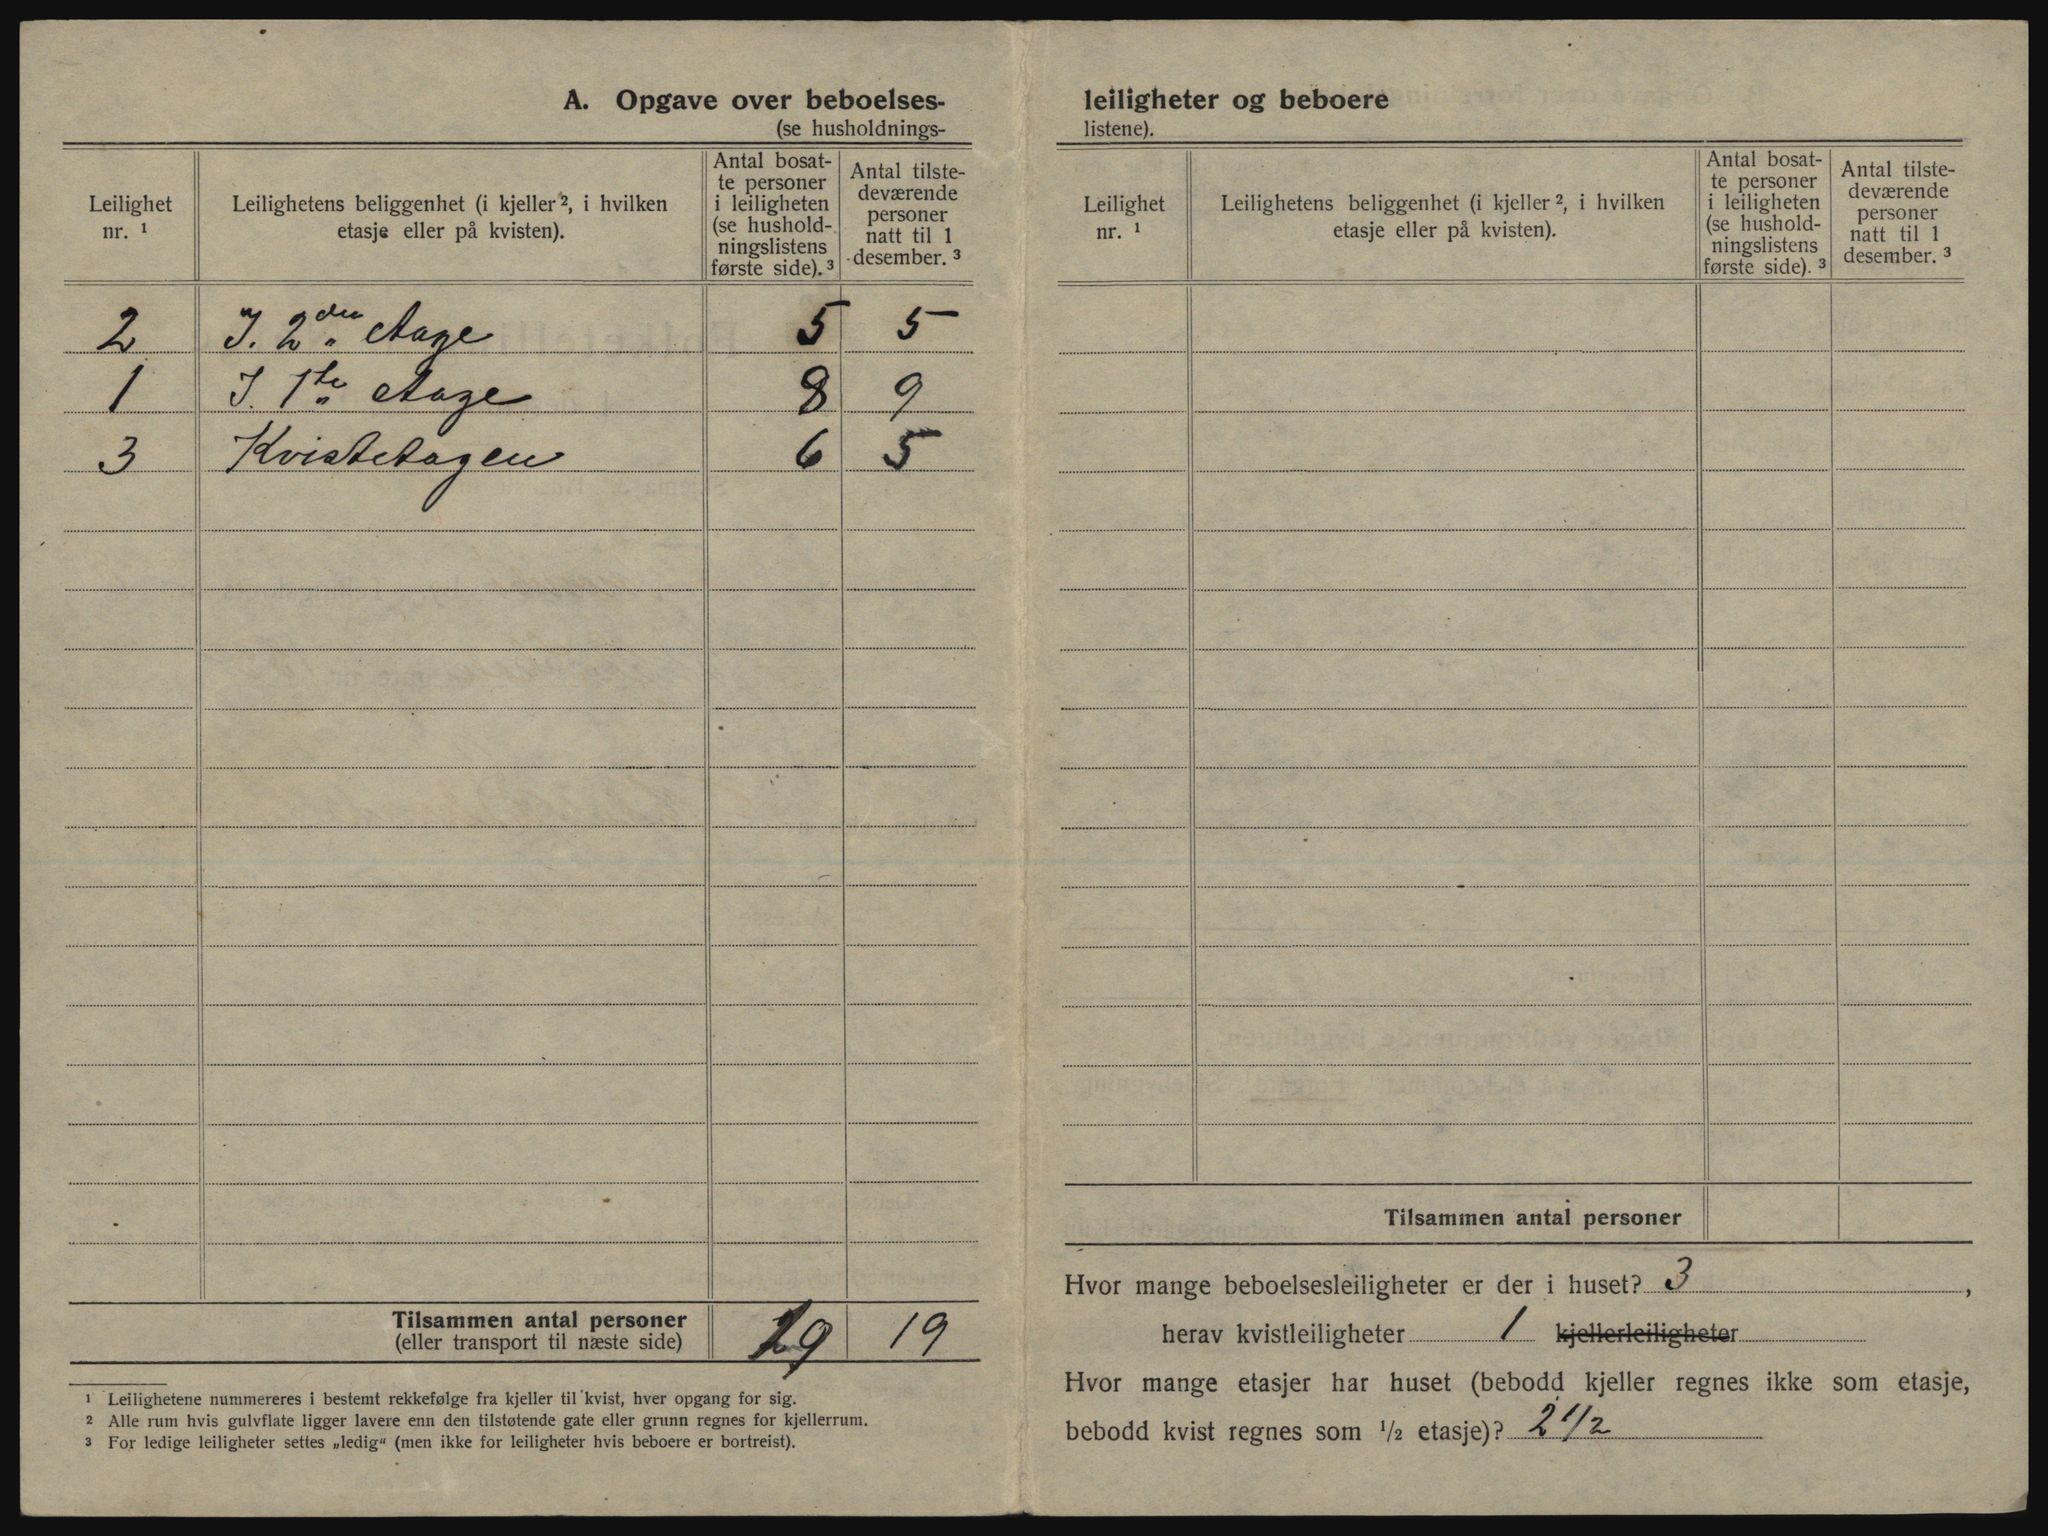 A. Opgave over beboelses-
(se husholdnings-
Leilighet
nr. ¹
Leilighetens beliggenhet (i kjeller ², i hvilken
etasje eller på kvisten).
Antal bosat-
te personer
i leiligheten
(se hushold-
ningslistens
første side). ³
Antal tilste-
deværende
personer
natt til 1
desember. ³
2 I. 2den etage 5 5
1 I. 1ste etage 8 9
3 Kvistetagen 6 5
Tilsammen antal personer
(eller transport til næste side)
19 19
¹ Leilighetene nummereres i bestemt rekkefølge fra kjeller til kvist, hver opgang for sig.
² Alle rum hvis gulvflate ligger lavere enn den tilstøtende gate eller grunn regnes for kjellerrum.
³ For ledige leiligheter settes „ledig“ (men ikke for leiligheter hvis beboere er bortreist).
leiligheter og beboere
listene).
Leilighet
nr. ¹
Leilighetens beliggenhet (i kjeller ², i hvilken
etasje eller på kvisten).
Antal bosat-
te personer
i leiligheten
(se hushold-
ningslistens
første side). ³
Antal tilste-
deværende
personer
natt til 1
desember. ³
Tilsammen antal personer
Hvor mange beboelsesleiligheter er der i huset? 3,
herav kvistleiligheter 1 kjellerleiligheter
Hvor mange etasjer har huset (bebodd kjeller regnes ikke som etasje,
bebodd kvist regnes som ½ etasje)? 2 1/2